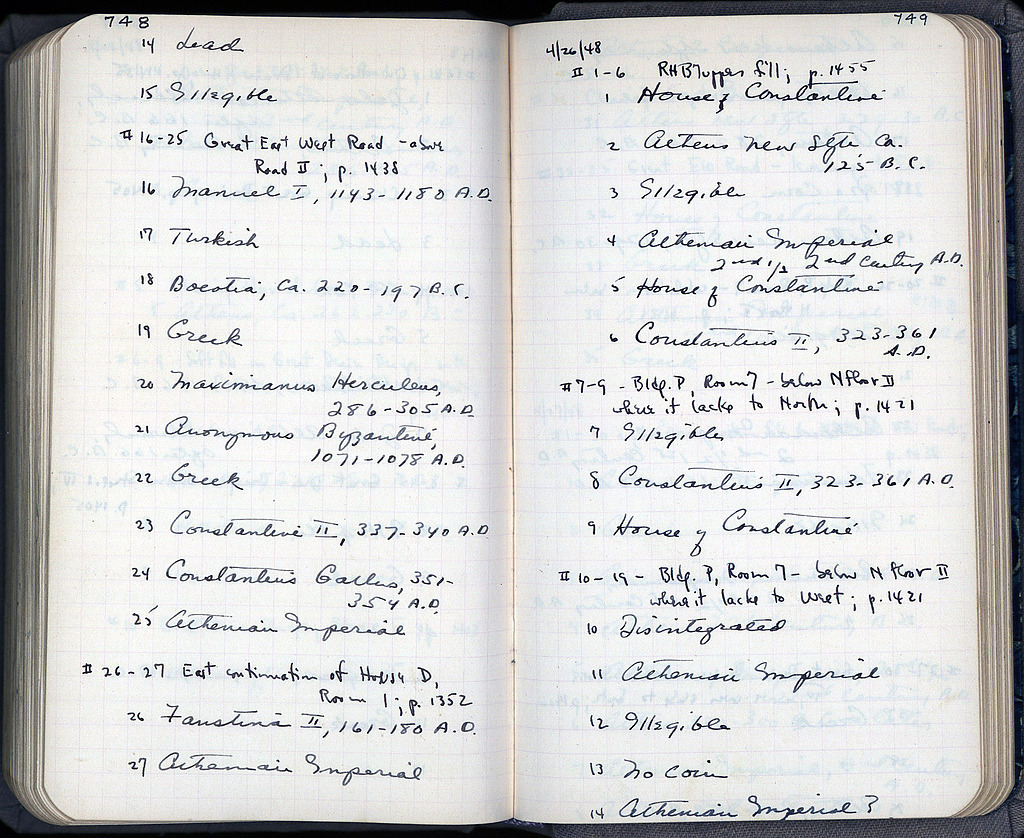 748
14 Lead
15 Illegible
#16-25 Great East West Road - above
Road II; p. 1438
16 Manuel I, 1143-1180 A.D.
17 Turkish
18 Boeotia, Ca. 220-197 B.C.
19 Greek
20 Maximianus Herculeus,
286-305 A.D.
21 Anonymous Byzantine,
1071-1078 A.D.
22 Greek
23 Constantine II, 337-340 A.D
24 Constantius Gallus, 351-
354 A.D.
25 Athenian Imperial
#26-27 East continuation of House D,
Room 1; p. 1352
26 Faustina II, 161-180 A.D.
27 Athenian Imperial
749
4/26/48
#1-6 upper fill; p. 1455
1 House of Constantine
2 Athens New Style Ca.
125 B.C.
3 Illegible
4 Athenian Imperial
2nd 1/2 2nd Century A.D.
5 House of Constantine
6 Constantius II, 323-361
A.D.
#7-9 - Bldg. P, Room 7 - below N floor II
where it lacks to North; p. 1421
7 Illegible
8 Constantius II, 323-361 A.D.
9 House of Constantine
#10-19 - Bldg. P, Room 7 - below N floor II
where it lacks to West; p. 1421
10 Disintegrated
11 Athenian Imperial
12 Illegible
13 No coin
14 Athenian Imperial?